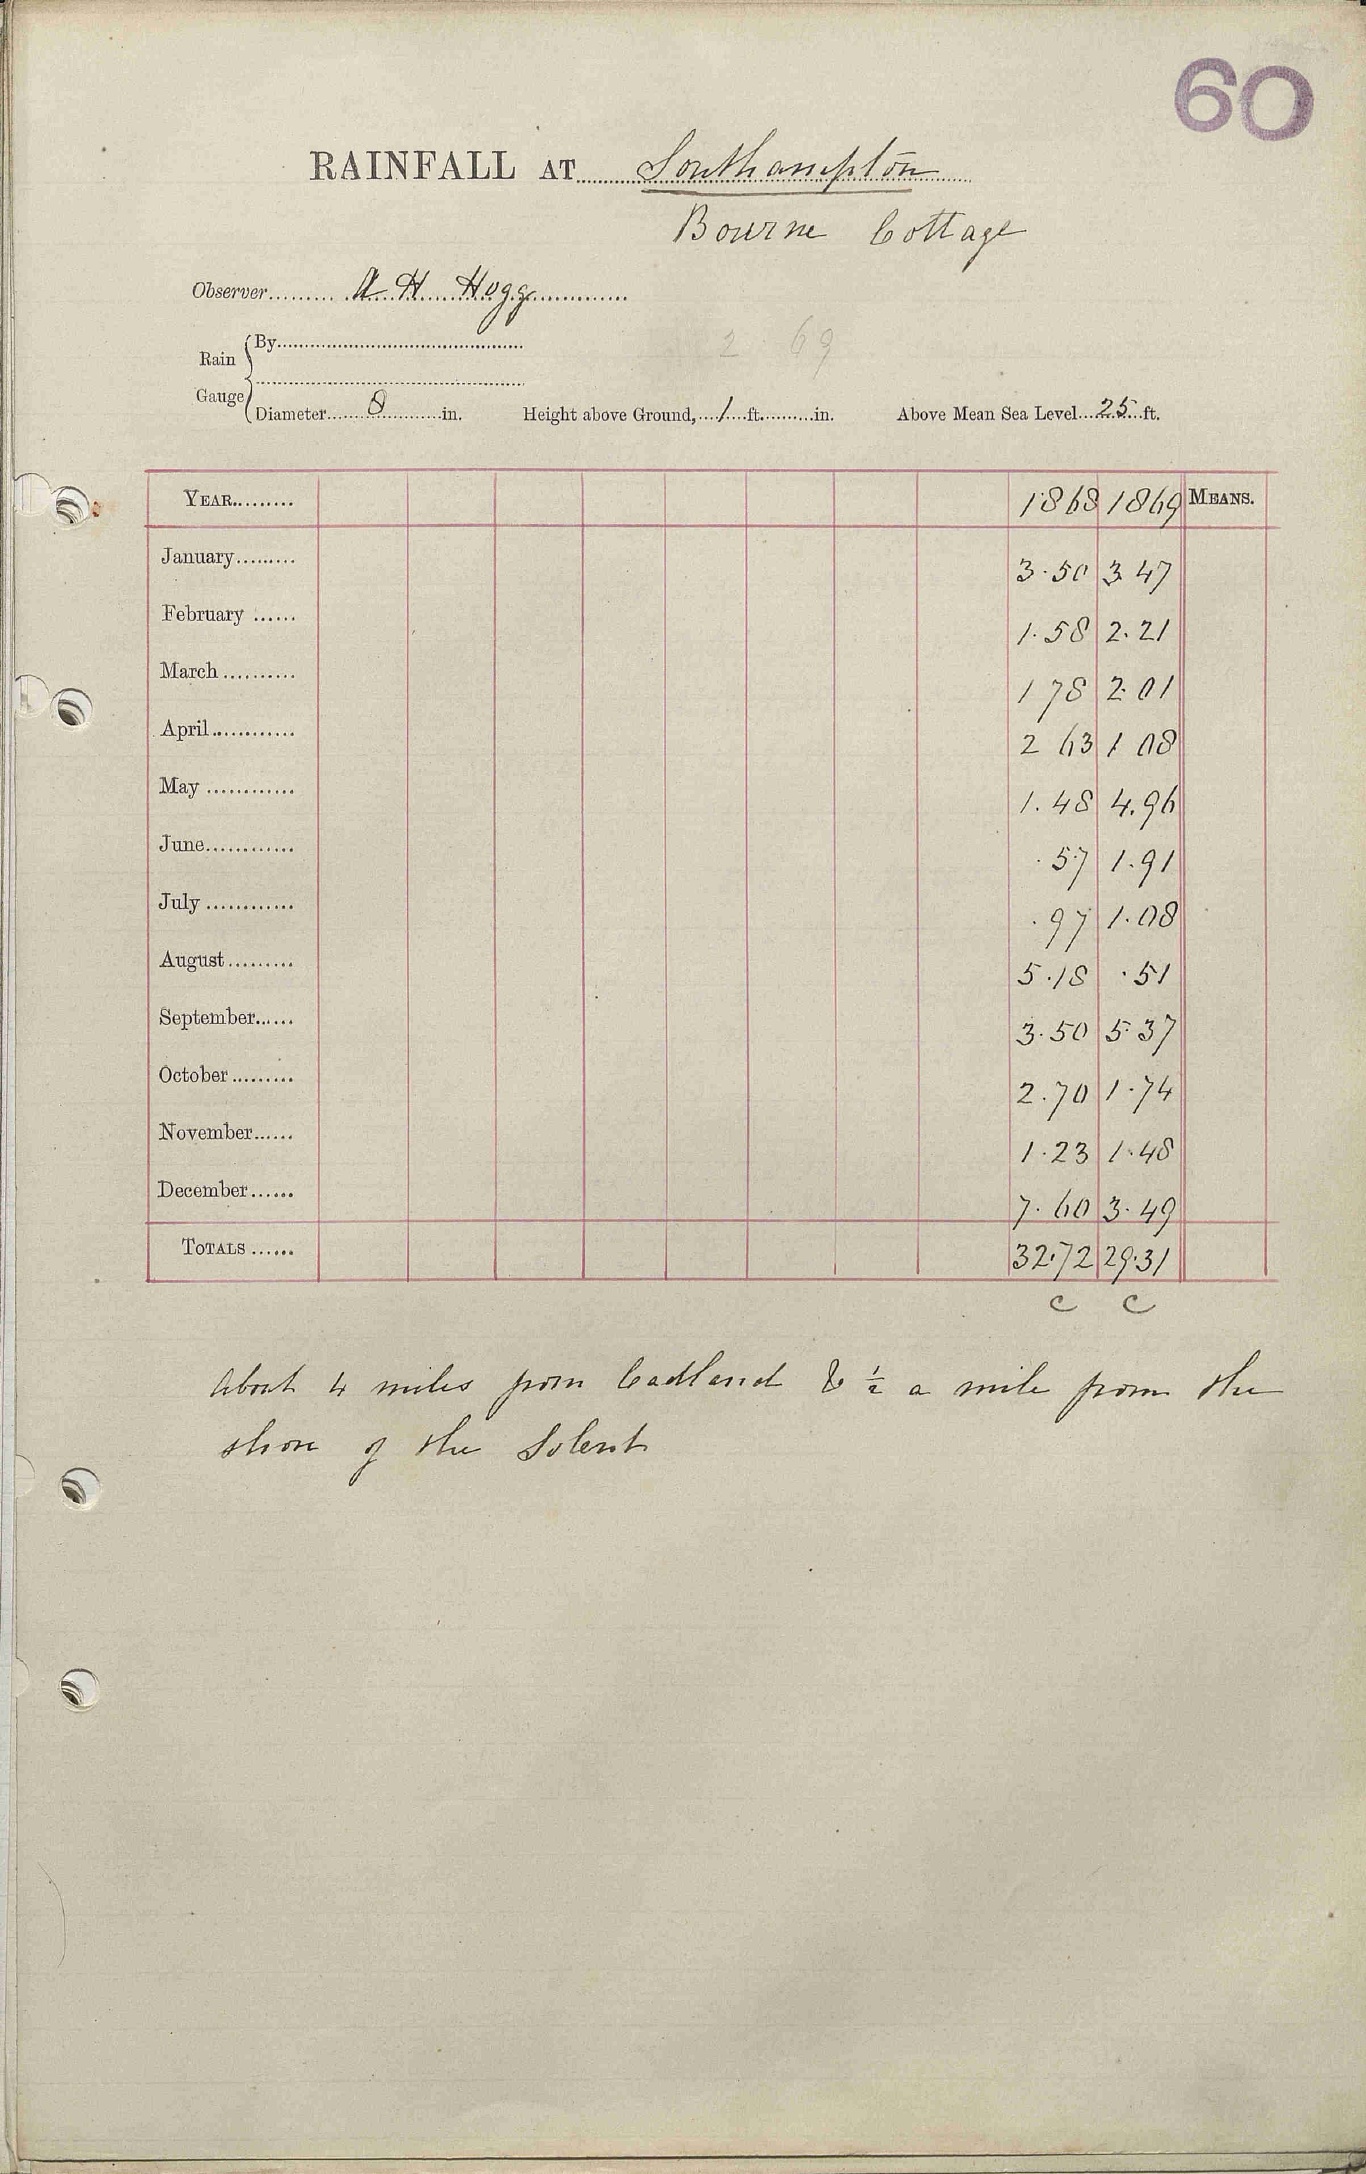 60
RAINFALL AT Southampton
Bourne Cottage
Observer A H Hogg
2 69
Rain Gauge { By
Diameter 8 in. Height above Ground, 1 ft. in. Above Mean Sea Level 25 ft.
YEAR 1868 1869 MEANS.
January 3.50 3.47
February 1.58 2.21
March 1 78 2.01
April 2 63 1 08
May 1.48 4.96
June .57 1.91
July .97 1.08
August 5.18 .51
September 3.50 5.37
October 2.70 1.74
November 1.23 1.48
December 7.60 3.49
TOTALS 32.72 29.31
c c
About 4 miles from Cadland & ½ a mile from the
shore of the Solent